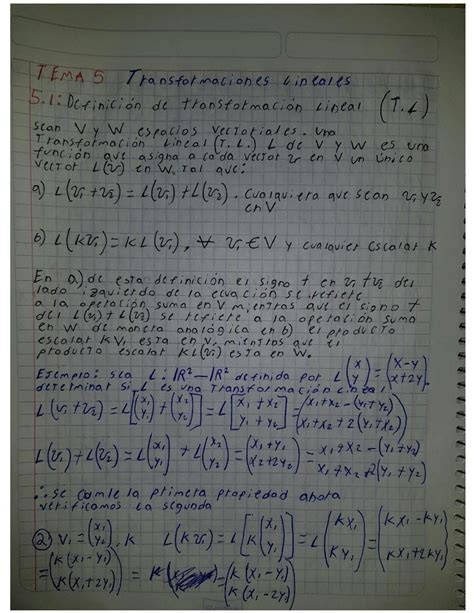 TEMA 5 Transformaciones Lineales
5.1: Definición de transformación Lineal (T.L)
sean V y W espacios vectoriales. una
Transformación Lineal (T.L.) L de V y W es una
función que asigna a cada vector v en V un único
vector L(v) en W. Tal que:
a) L(v₁+v₂) = L(v₁)+L(v₂). Cualquiera que sean v₁ y v₂
en V
b) L(kv₁) = kL(v₁), ∀ v₁ ∈ V y cualquier Escalar k
En a) de esta definición el signo + en v₁+v₂ del
lado izquierdo de la ecuación se refiere
a la operación suma en V mientras que el signo +
del L(v₁)+L(v₂) se refiere a la operación suma
en W de manera analógica en b) el producto
escalar kv₁ esta en v, mientras que el
producto escalar kL(v₁) esta en W.
Ejemplo: sea L: IR² — IR² definida por L(x y) = (x-y x+2y).
determinar si L es una Transformación Lineal
L(v₁+v₂) = L[(x₁ y₁) + (x₂ y₂)] = L[x₁+x₂ y₁+y₂] = (x₁+x₂-(y₁+y₂) x₁+x₂+2(y₁+y₂))
L(v₁)+L(v₂) = L(x₁ y₁) + L(x₂ y₂) = (x₁+y₁ x₂+2y₂) = x₁+x₂-(y₁+y₂) x₁+x₂+2(y₁+y₂)
∴ se cumle la primera propiedad ahora
verificamos la segunda
② v₁=(x₁ y₁), k L(kv₁) = L[k(x₁ y₁)] = L(kx₁ ky₁) = (kx₁-ky₁ kx₁+2ky₁)
= (k(x₁-y₁) k(x₁+2y₁)) = = (k(x₁-y₁) k(x₁-2y₁))